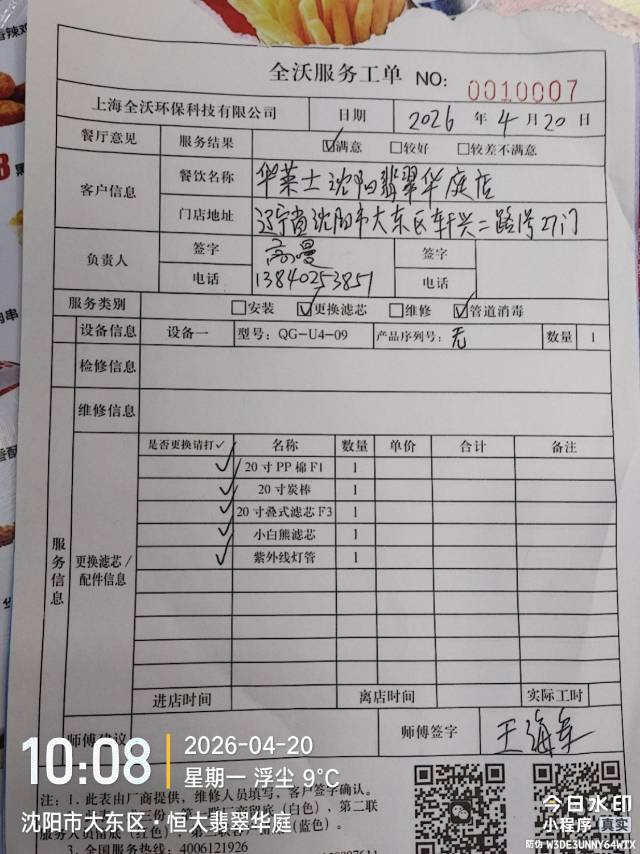 全沃服务工单 NO: 0010007
上海全沃环保科技有限公司 日期 2026 年 4 月 20 日
餐厅意见 服务结果 ☑满意 □较好 □较差不满意
客户信息 餐饮名称 华莱士沈阳翡翠华庭店
门店地址 辽宁省沈阳市大东区轩兴二路 27门
负责人 签字 高曼 签字
电话 13840253851 电话
服务类别 □安装 ☑更换滤芯 □维修 ☑管道消毒
设备信息 设备一 型号: QG-U4-09 产品序列号: 无 数量 1
检修信息
维修信息
服务信息
更换滤芯/配件信息
是否更换请打✓ 名称 数量 单价 合计 备注
✓ 20寸PP棉F1 1
✓ 20寸炭棒 1
✓ 20寸叠式滤芯F3 1
✓ 小白熊滤芯 1
✓ 紫外线灯管 1
进店时间 离店时间 实际工时
师傅建议 师傅签字 王海军
注: 1. 此表由厂商提供, 维修人员填写, 客户签字确认。
(白色), 第二联
(蓝色)。
3. 全国服务热线: 4006121926
10:08
2026-04-20
星期一 浮尘 9℃
沈阳市大东区·恒大翡翠华庭
今日水印
小程序 真实
防伪 W3DE3UNNY64WTX